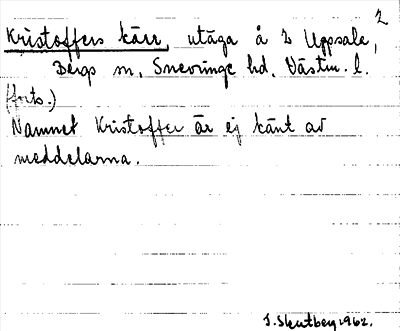 2
Kristoffers kärr, utäga å 2 Uppsala,
Bergs sn, Snevringe hd. Västm. l.
(forts.)
Namnet Kristoffer är ej känt av
meddelarna.
1962.